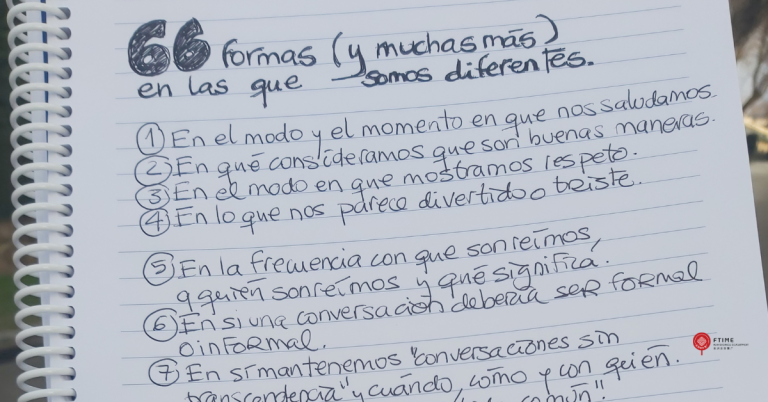 66 formas (y muchas más)
en las que somos diferentes.
① En el modo y el momento en que nos saludamos.
② En qué consideramos que son buenas maneras.
③ En el modo en que mostramos respeto.
④ En lo que nos parece divertido o triste.
⑤ En la frecuencia con que sonreímos,
a quién sonreímos y qué significa.
⑥ En si una conversación debería ser formal
o informal.
⑦ En si mantenemos "conversaciones sin
transcendencia" y cuándo, cómo y con quién.
común".
FTIME